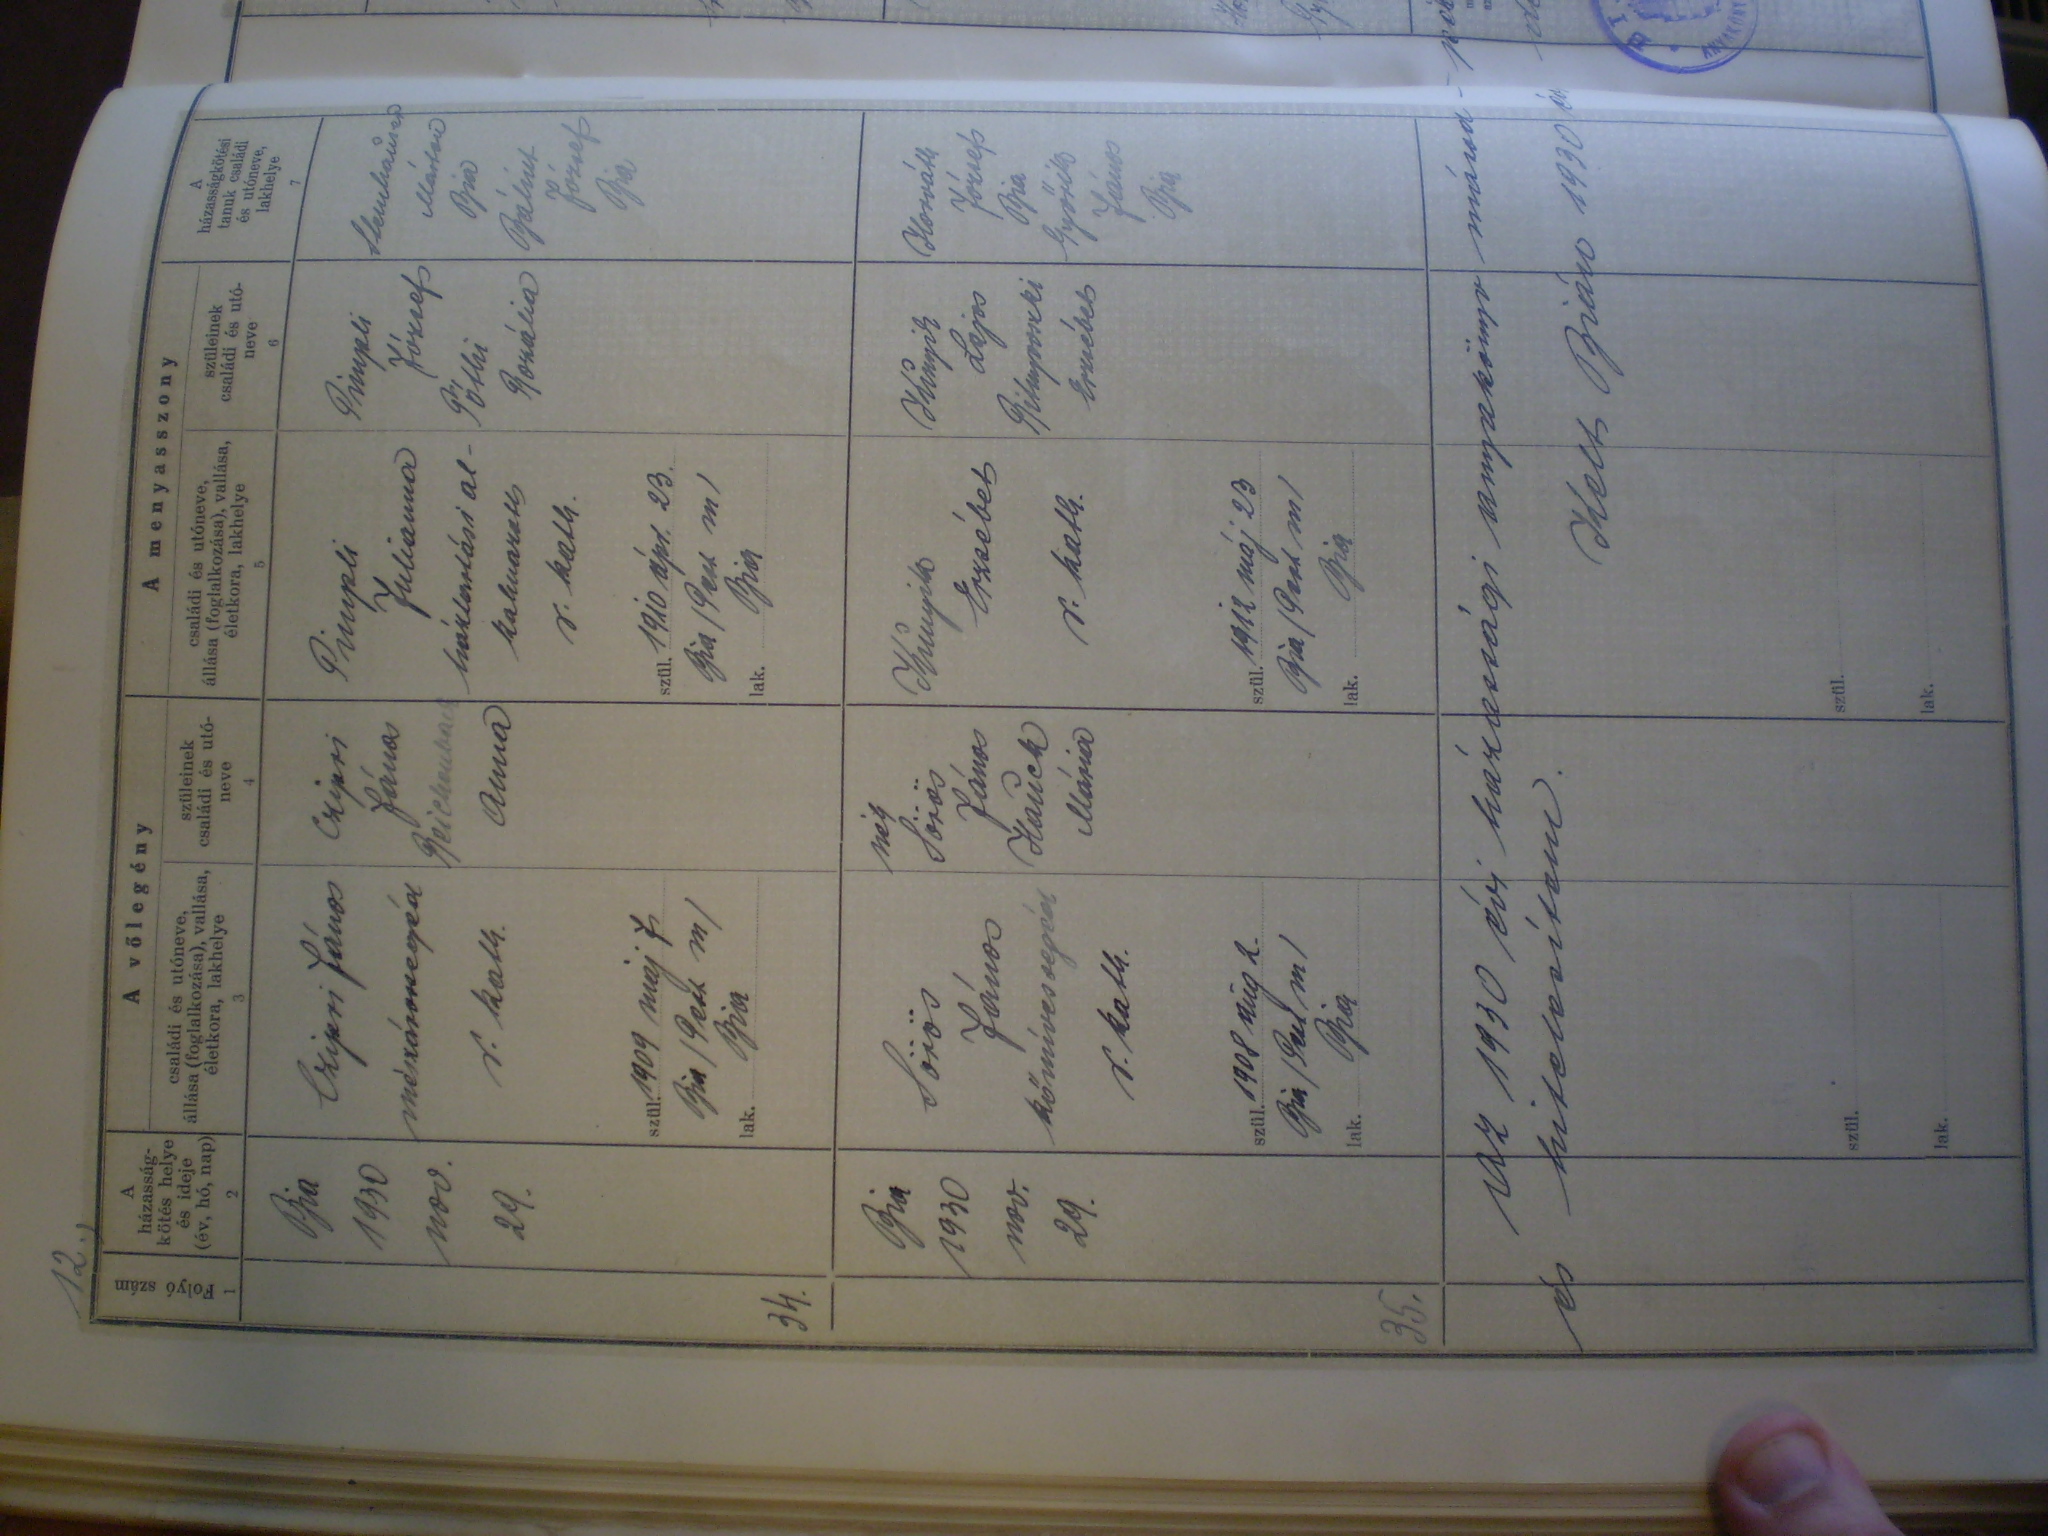 12.)
Folyó szám
1
A házasság-
kötés helye
és ideje
(év, hó, nap)
2
A vőlegény
családi és utóneve,
állása (foglalkozása), vallása,
életkora, lakhelye
3
szüleinek
családi és utó-
neve
4
A menyasszony
családi és utóneve,
állása (foglalkozása), vallása,
életkora, lakhelye
5
szüleinek
családi és utó-
neve
6
A
házasságkötési
tanuk családi
és utóneve,
lakhelye
7
34.
Bia
1930
nov.
29.
Czipri János
mészárossegéd
r. kath.
szül. 1909 máj 7
Bia (Pest m)
lak. Bia
Czipri
János
Reichenbach
Anna
Pimpli
Julianna
háztartási al-
kalmazott
r. kath.
szül. 1910 ápr. 23.
Bia (Pest m)
lak. Bia
Pimpli
József
Rosália
Márton
Bia
Bálint
József
Bia
35.
Bia
1930
nov.
29.
Sörös
János
kőművessegéd
r. kath.
szül. 1908 aug 2.
Bia (Pest m)
lak. Bia
néh
Sörös
János
Hauck
Mária
Erzsébet
r. kath.
szül. 1912 máj 23
Bia (Pest m)
lak. Bia
Lajos
Erzsébet
Horváth
József
Bia
János
Bia
Az 1930 évi házassági anyakönyv másod-
és hitelesítem.
Kelt Bián 1930
szül.
lak.
szül.
lak.